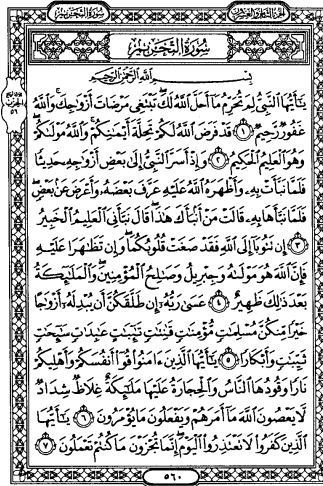 سُورَةُ التَّحْرِيمِ
سُورَةُ التَّحْرِيمِ
بِسْمِ اللَّهِ الرَّحْمَٰنِ الرَّحِيمِ
يَٰٓأَيُّهَا ٱلنَّبِىُّ لِمَ تُحَرِّمُ مَآ أَحَلَّ ٱللَّهُ لَكَ تَبْتَغِى مَرْضَاتَ أَزْوَٰجِكَ وَٱللَّهُ
غَفُورٌ رَّحِيمٌ ١ قَدْ فَرَضَ ٱللَّهُ لَكُمْ تَحِلَّةَ أَيْمَٰنِكُمْ وَٱللَّهُ مَوْلَىٰكُمْ
وَهُوَ ٱلْعَلِيمُ ٱلْحَكِيمُ ٢ وَإِذْ أَسَرَّ ٱلنَّبِىُّ إِلَىٰ بَعْضِ أَزْوَٰجِهِ حَدِيثًا
فَلَمَّا نَبَّأَتْ بِهِ وَأَظْهَرَهُ ٱللَّهُ عَلَيْهِ عَرَّفَ بَعْضَهُ وَأَعْرَضَ عَنۢ بَعْضٍ
فَلَمَّا نَبَّأَهَا بِهِ قَالَتْ مَنْ أَنۢبَأَكَ هَٰذَا قَالَ نَبَّأَنِىَ ٱلْعَلِيمُ ٱلْخَبِيرُ
٣ إِن تَتُوبَآ إِلَى ٱللَّهِ فَقَدْ صَغَتْ قُلُوبُكُمَا وَإِن تَظَٰهَرَا عَلَيْهِ
فَإِنَّ ٱللَّهَ هُوَ مَوْلَىٰهُ وَجِبْرِيلُ وَصَٰلِحُ ٱلْمُؤْمِنِينَ وَٱلْمَلَٰٓئِكَةُ
بَعْدَ ذَٰلِكَ ظَهِيرٌ ٤ عَسَىٰ رَبُّهُۥٓ إِن طَلَّقَكُنَّ أَن يُبْدِلَهُۥٓ أَزْوَٰجًا
خَيْرًا مِّنكُنَّ مُسْلِمَٰتٍ مُّؤْمِنَٰتٍ قَٰنِتَٰتٍ تَٰٓئِبَٰتٍ عَٰبِدَٰتٍ سَٰٓئِحَٰتٍ
ثَيِّبَٰتٍ وَأَبْكَارًا ٥ يَٰٓأَيُّهَا ٱلَّذِينَ ءَامَنُوا۟ قُوٓا۟ أَنفُسَكُمْ وَأَهْلِيكُمْ
نَارًا وَقُودُهَا ٱلنَّاسُ وَٱلْحِجَارَةُ عَلَيْهَا مَلَٰٓئِكَةٌ غِلَاظٌ شِدَادٌ
لَّا يَعْصُونَ ٱللَّهَ مَآ أَمَرَهُمْ وَيَفْعَلُونَ مَا يُؤْمَرُونَ ٦ يَٰٓأَيُّهَا
ٱلَّذِينَ كَفَرُوا۟ لَا تَعْتَذِرُوا۟ ٱلْيَوْمَ إِنَّمَا تُجْزَوْنَ مَا كُنتُمْ تَعْمَلُونَ ٧
٥٦٠